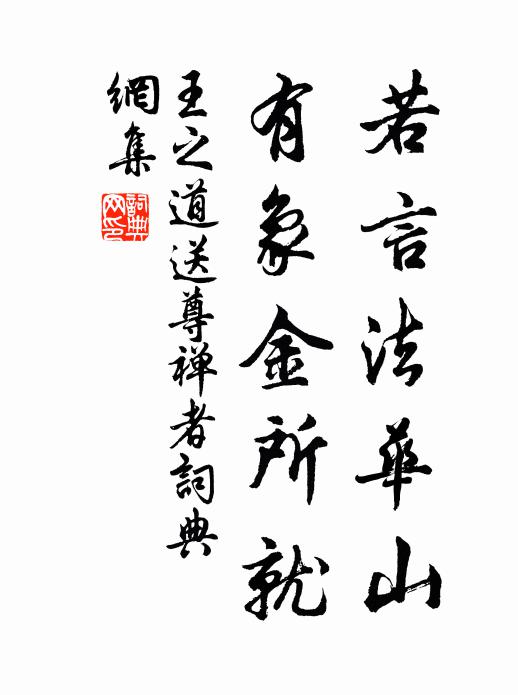 若言法華山
有象金所就
王之道送尊禅者詞典
網集
詞典网印